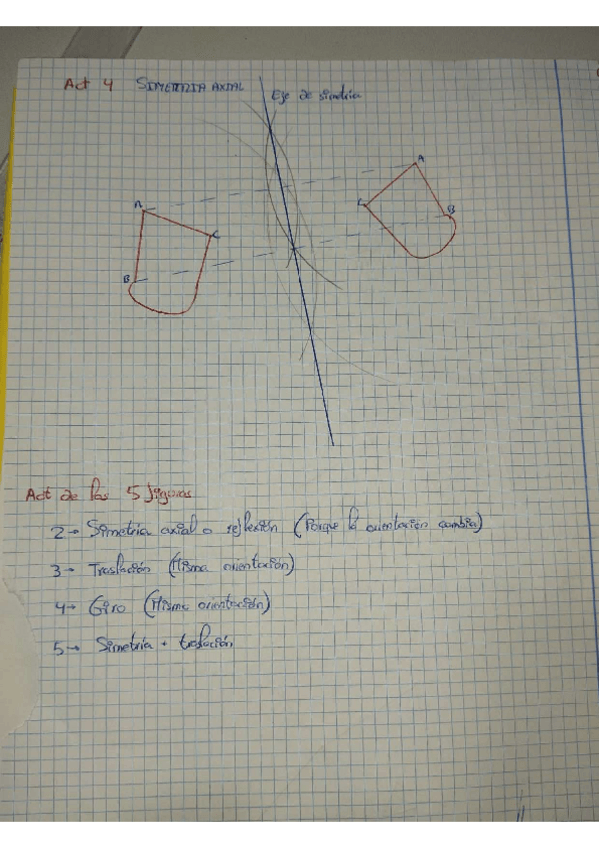 Act 4 SIMETRIA AXIAL
Eje de simetria
A
A
C
C
B
B
Act de las 5 figuras
2→ Simetria axial o reflexión (Porque la orientación cambia)
3→ Traslación (Misma orientación)
4→ Giro (Misma orientación)
5→ Simetría + traslación